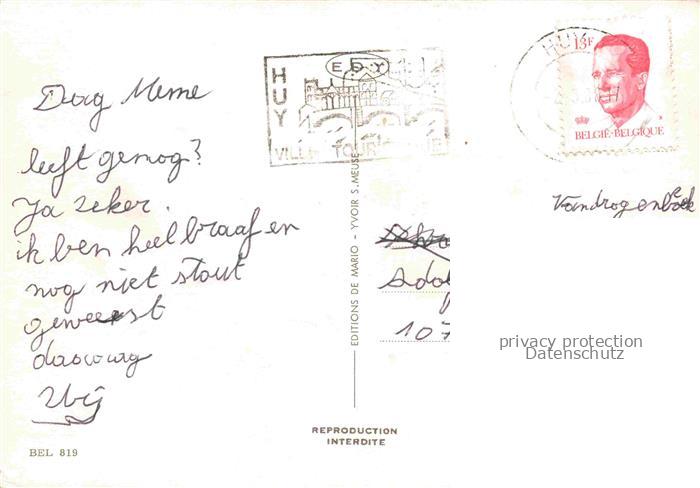 Dag Meme
leeft gemog?
Ja zeker.
ik ben heel braaf en
nog niet stout
geweest
BEL 819
EDITIONS DE MARIO - YVOIR S. MEUSE
REPRODUCTION
INTERDITE
EDY
HUY
VILLE TOURISTIQUE
HUY
13F
BELGIË-BELGIQUE
Vandrogenbroek
Adol
107
privacy protection
Datenschutz